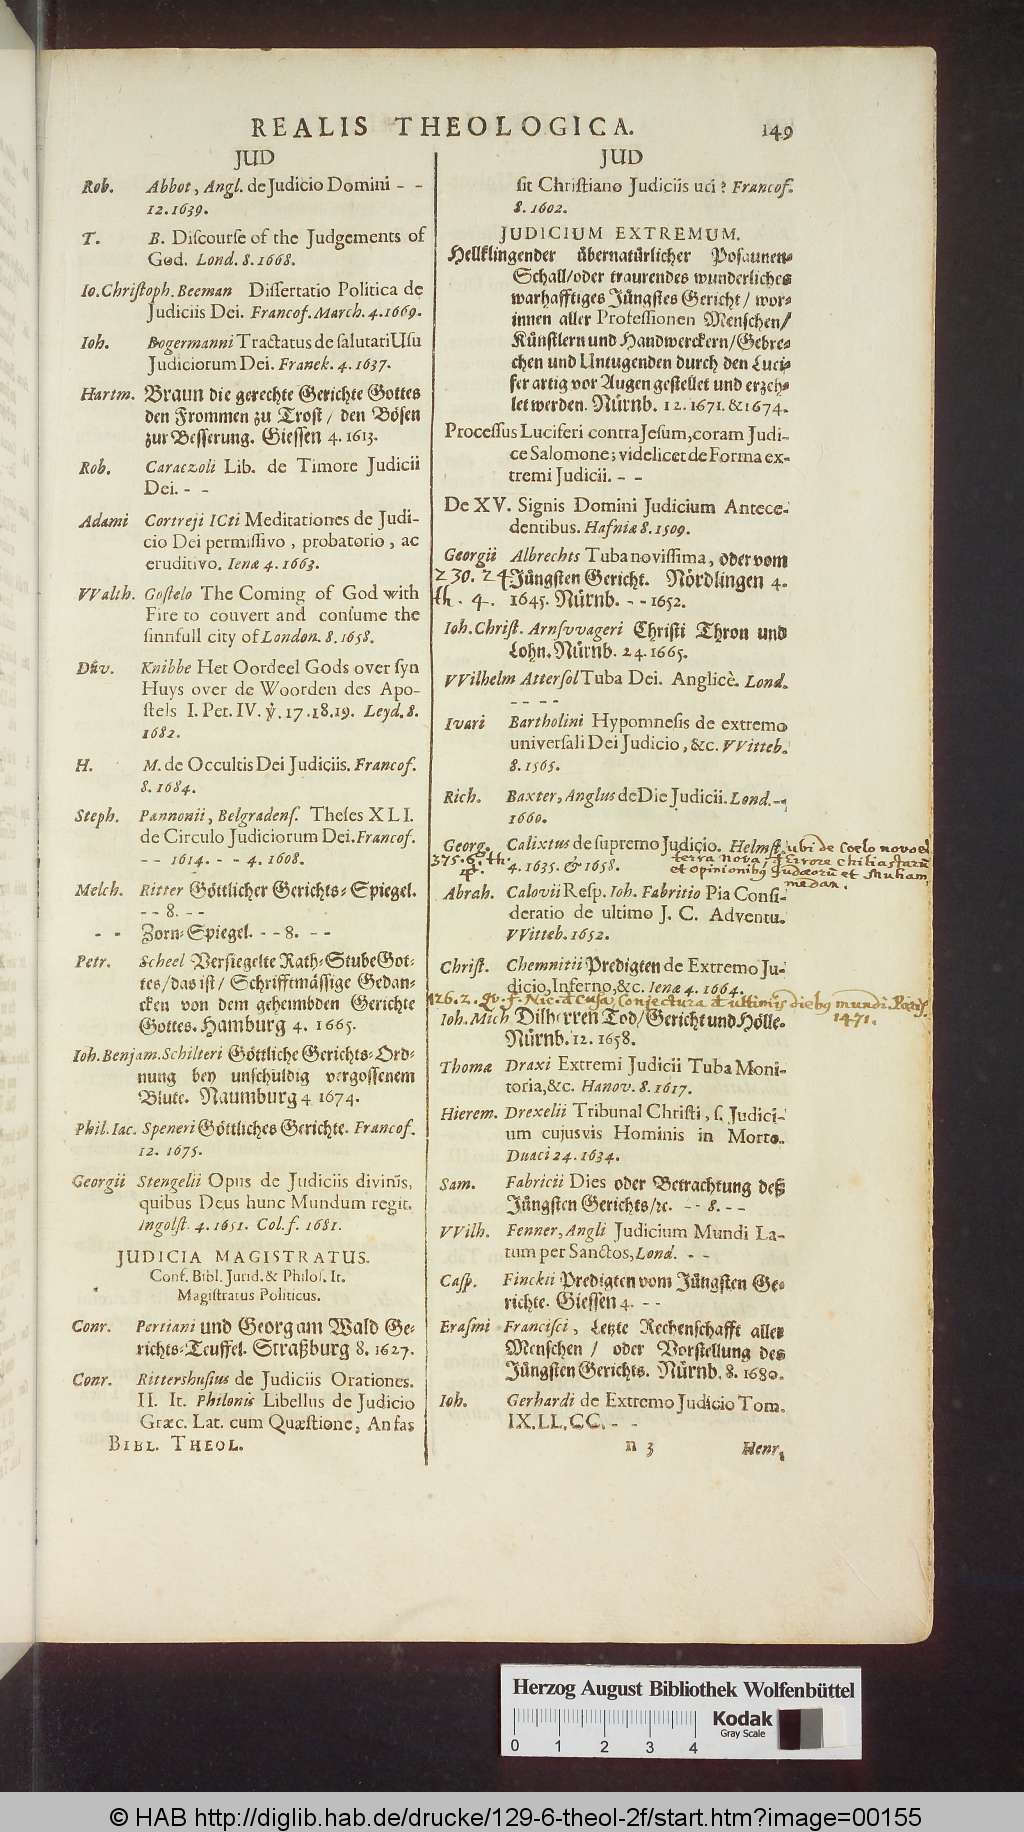 REALIS THEOLOGICA. 149
JUD
Rob. Abbot, Angl. de Judicio Domini - -
12. 1639.
T. B. Discourſe of the Judgements of
God. Lond. 8. 1668.
Io. Chriſtoph. Beeman Diſſertatio Politica de
Judiciis Dei. Francof. March. 4. 1669.
Ioh. Bogermanni Tractatus de ſalutari Uſu
Judiciorum Dei. Franek. 4. 1637.
Hartm. Braun die gerechte Gerichte Gottes
den Frommen zu Troſt / den Böſen
zur Beſſerung. Gieſſen 4. 1613.
Rob. Caraczoli Lib. de Timore Judicii
Dei. - -
Adami Cortreji ICti Meditationes de Judi-
cio Dei permiſſivo, probatorio, ac
eruditivo. Ienæ 4. 1663.
VValth. Goſtelo The Coming of God with
Fire to convert and conſume the
ſinnfull city of London. 8. 1658.
Dav. Knibbe Het Oordeel Gods over ſyn
Huys over de Woorden des Apo-
ſtels I. Pet. IV. ỳ. 17. 18. 19. Leyd. 8.
1682.
H. M. de Occultis Dei Judiciis. Francof.
8. 1684.
Steph. Pannonii, Belgradenſ. Theſes XLI.
de Circulo Judiciorum Dei. Francof.
- - 1614. - - 4. 1608.
Melch. Ritter Göttlicher Gerichts-Spiegel.
- - 8. - -
- - Zorn-Spiegel. - - 8. - -
Petr. Scheel Verſiegelte Rath-Stube Got-
tes / das iſt / Schrifftmäſſige Gedan-
cken von dem geheimbden Gerichte
Gottes. Hamburg 4. 1665.
Ioh. Benjam. Schilteri Göttliche Gerichts-Ord-
nung bey unſchuldig vergoſſenem
Blute. Naumburg 4 1674.
Phil. Iac. Speneri Göttliches Gerichte. Francof.
12. 1675.
Georgii Stengelii Opus de Judiciis divinis,
quibus Deus hunc Mundum regit.
Ingolſt. 4. 1651. Col. f. 1681.
JUDICIA MAGISTRATUS.
Conf. Bibl. Jurid. & Philoſ. It.
Magiſtratus Politicus.
Conr. Pertiani und Georg am Wald Ge-
richts-Teuffel. Straßburg 8. 1627.
Conr. Rittershuſius de Judiciis Orationes.
II. It. Philonis Libellus de Judicio
Græc. Lat. cum Quæſtione, An fas
BIBL. THEOL.
JUD
ſit Chriſtiano Judiciis uti? Francof.
8. 1602.
JUDICIUM EXTREMUM.
Hellklingender übernatürlicher Poſaunen-
Schall / oder traurendes wunderliches
warhafftiges Jüngſtes Gericht / wor-
innen aller Profeſſionen Menſchen /
Künſtlern und Handwerckern / Gebre-
chen und Untugenden durch den Luci-
fer artig vor Augen geſtellet und erzeh-
let werden. Nürnb. 12. 1671. & 1674.
Proceſſus Luciferi contra Jeſum, coram Judi-
ce Salomone; videlicet de Forma ex-
tremi Judicii. - -
De XV. Signis Domini Judicium Antece-
dentibus. Hafniæ 8. 1509.
Georgii Albrechts Tuba noviſſima, oder vom
230. 24 Jüngſten Gericht. Nördlingen 4.
th. 4. 1645. Nürnb. - - 1652.
Ioh. Chriſt. Arnſvvageri Chriſti Thron und
Lohn. Nürnb. 24. 1665.
VVilhelm Atterſol Tuba Dei. Anglicè. Lond.
- - - -
Ivari Bartholini Hypomneſis de extremo
univerſali Dei Judicio, &c. VVitteb.
8. 1565.
Rich. Baxter, Anglus de Die Judicii. Lond. - -
1660.
Georg. Calixtus de ſupremo Judicio. Helmſt. ubi de Coelo novo et
375. 6. th. 4. 1635. & 1658. terra nova, Errore Chiliastarū
et opinionibꝫ Judæorū et Muham,
medan.
Abrah. Calovii Reſp. Ioh. Fabritio Pia Conſi-
deratio de ultimo J. C. Adventu.
VVitteb. 1652.
Chriſt. Chemnitii Predigten de Extremo Ju-
dicio, Inferno, &c. Ienæ 4. 1664.
126. 2. Qv. f. Nic. d Cusa Conjectura d ultimis diebꝫ mundi. Paris.
1471.
Ioh. Mich Dilherren Tod / Gericht und Hölle.
Nürnb. 12. 1658.
Thomæ Draxi Extremi Judicii Tuba Moni-
toria, &c. Hanov. 8. 1617.
Hierem. Drexelii Tribunal Chriſti, ſ. Judici-
um cujusvis Hominis in Morte.
Duaci 24. 1634.
Sam. Fabricii Dies oder Betrachtung deß
Jüngſten Gerichts / ꝛc. - - 8. - -
VVilh. Fenner, Angli Judicium Mundi La-
tum per Sanctos, Lond. - -
Caſp. Finckii Predigten vom Jüngſten Ge-
richte. Gieſſen 4. - -
Eraſmi Franciſci, Letzte Rechenſchafft aller
Menſchen / oder Vorſtellung des
Jüngſten Gerichts. Nürnb. 8. 1680.
Ioh. Gerhardi de Extremo Judicio Tom.
IX. LL. CC. - -
n 3 Henr.
Herzog August Bibliothek Wolfenbüttel
Kodak
Gray Scale
0 1 2 3 4
© HAB http://diglib.hab.de/drucke/129-6-theol-2f/start.htm?image=00155